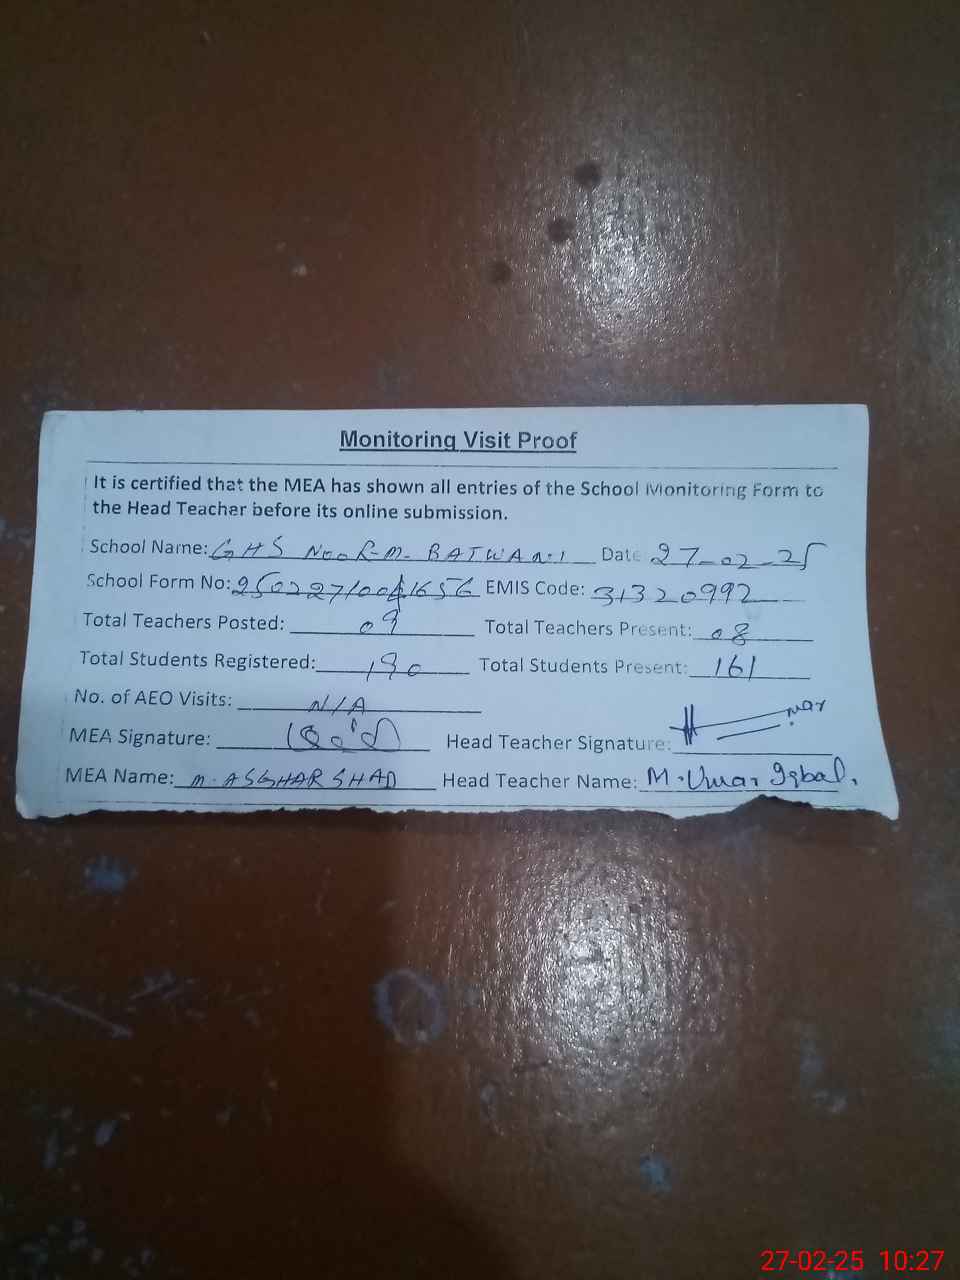 Monitoring Visit Proof
It is certified that the MEA has shown all entries of the School Monitoring Form to
the Head Teacher before its online submission.
School Name: GHS NOOR-M- BATWANI Date 27-02-25
School Form No: EMIS Code: 31320992
Total Teachers Posted: 09 Total Teachers Present: 08
Total Students Registered: 190 Total Students Present: 161
No. of AEO Visits: N/A
MEA Signature: Head Teacher Signature:
MEA Name: M. ASGHAR SHAD Head Teacher Name: M. Umar Iqbal.
27-02-25 10:27